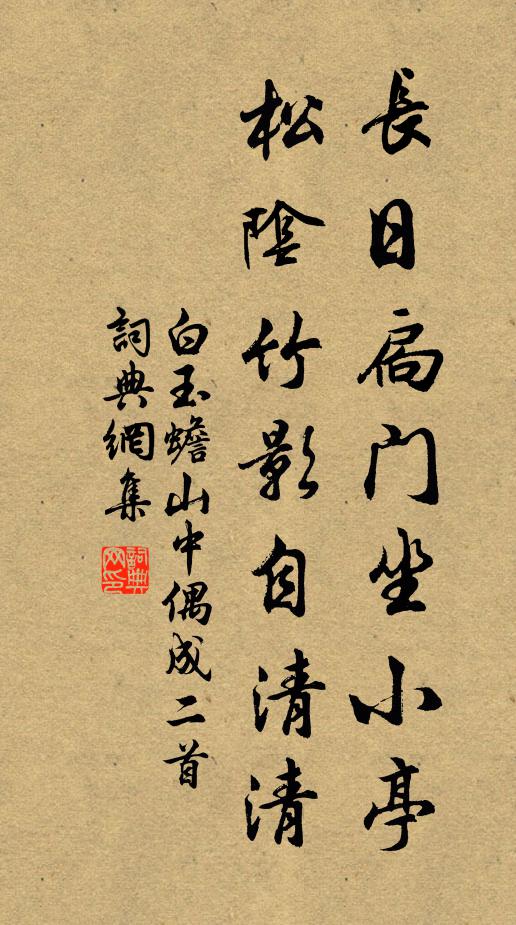 長日扃門坐小亭
松陰竹影自清清
白玉蟾山中偶成二首
詞典網集
詞典網印